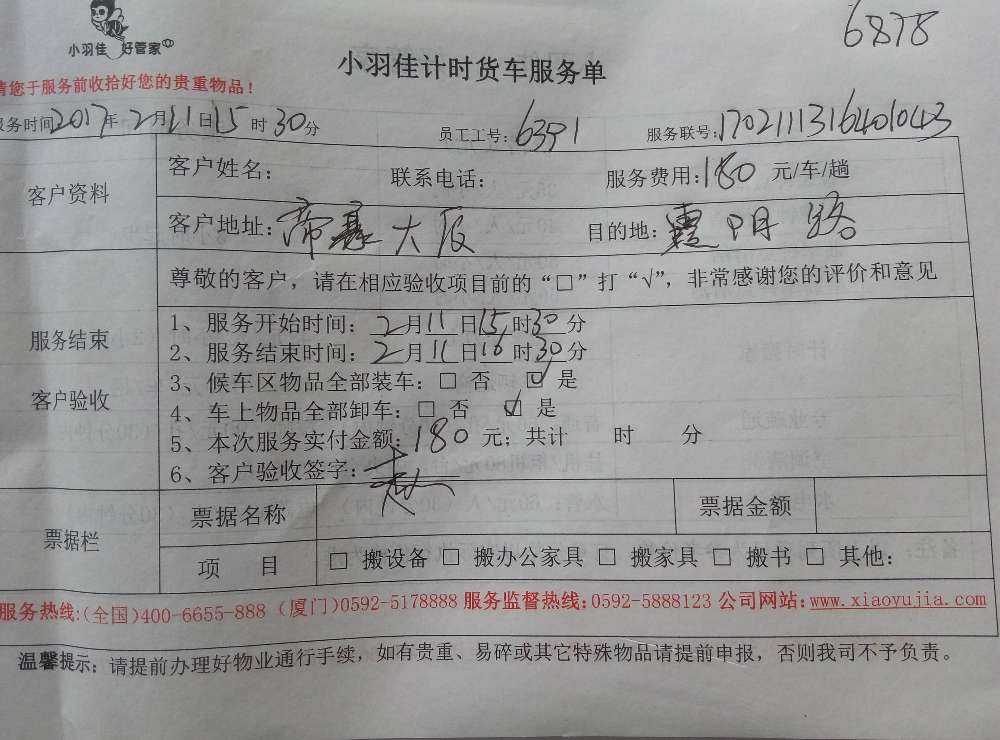 6878
小羽佳 好管家
小羽佳计时货车服务单
请您于服务前收拾好您的贵重物品!
服务时间2017年2月11日15时30分 员工工号:6391 服务联号:1702111316401043
客户资料 客户姓名: 联系电话: 服务费用:180 元/车/趟
客户地址: 大厦 目的地:霞阳路
尊敬的客户，请在相应验收项目前的“□”打“√”，非常感谢您的评价和意见
服务结束
客户验收
1、服务开始时间:2月11日15时30分
2、服务结束时间:2月11日16时30分
3、候车区物品全部装车:□ 否 ☑ 是
4、车上物品全部卸车:□ 否 ☑ 是
5、本次服务实付金额:180元；共计 时 分
6、客户验收签字:
票据栏 票据名称 票据金额
项 目 □ 搬设备 □ 搬办公家具 □ 搬家具 □ 搬书 □ 其他:
服务热线:(全国)400-6655-888 (厦门)0592-5178888 服务监督热线:0592-5888123 公司网站:www.xiaoyujia.com
温馨提示:请提前办理好物业通行手续，如有贵重、易碎或其它特殊物品请提前申报，否则我司不予负责。